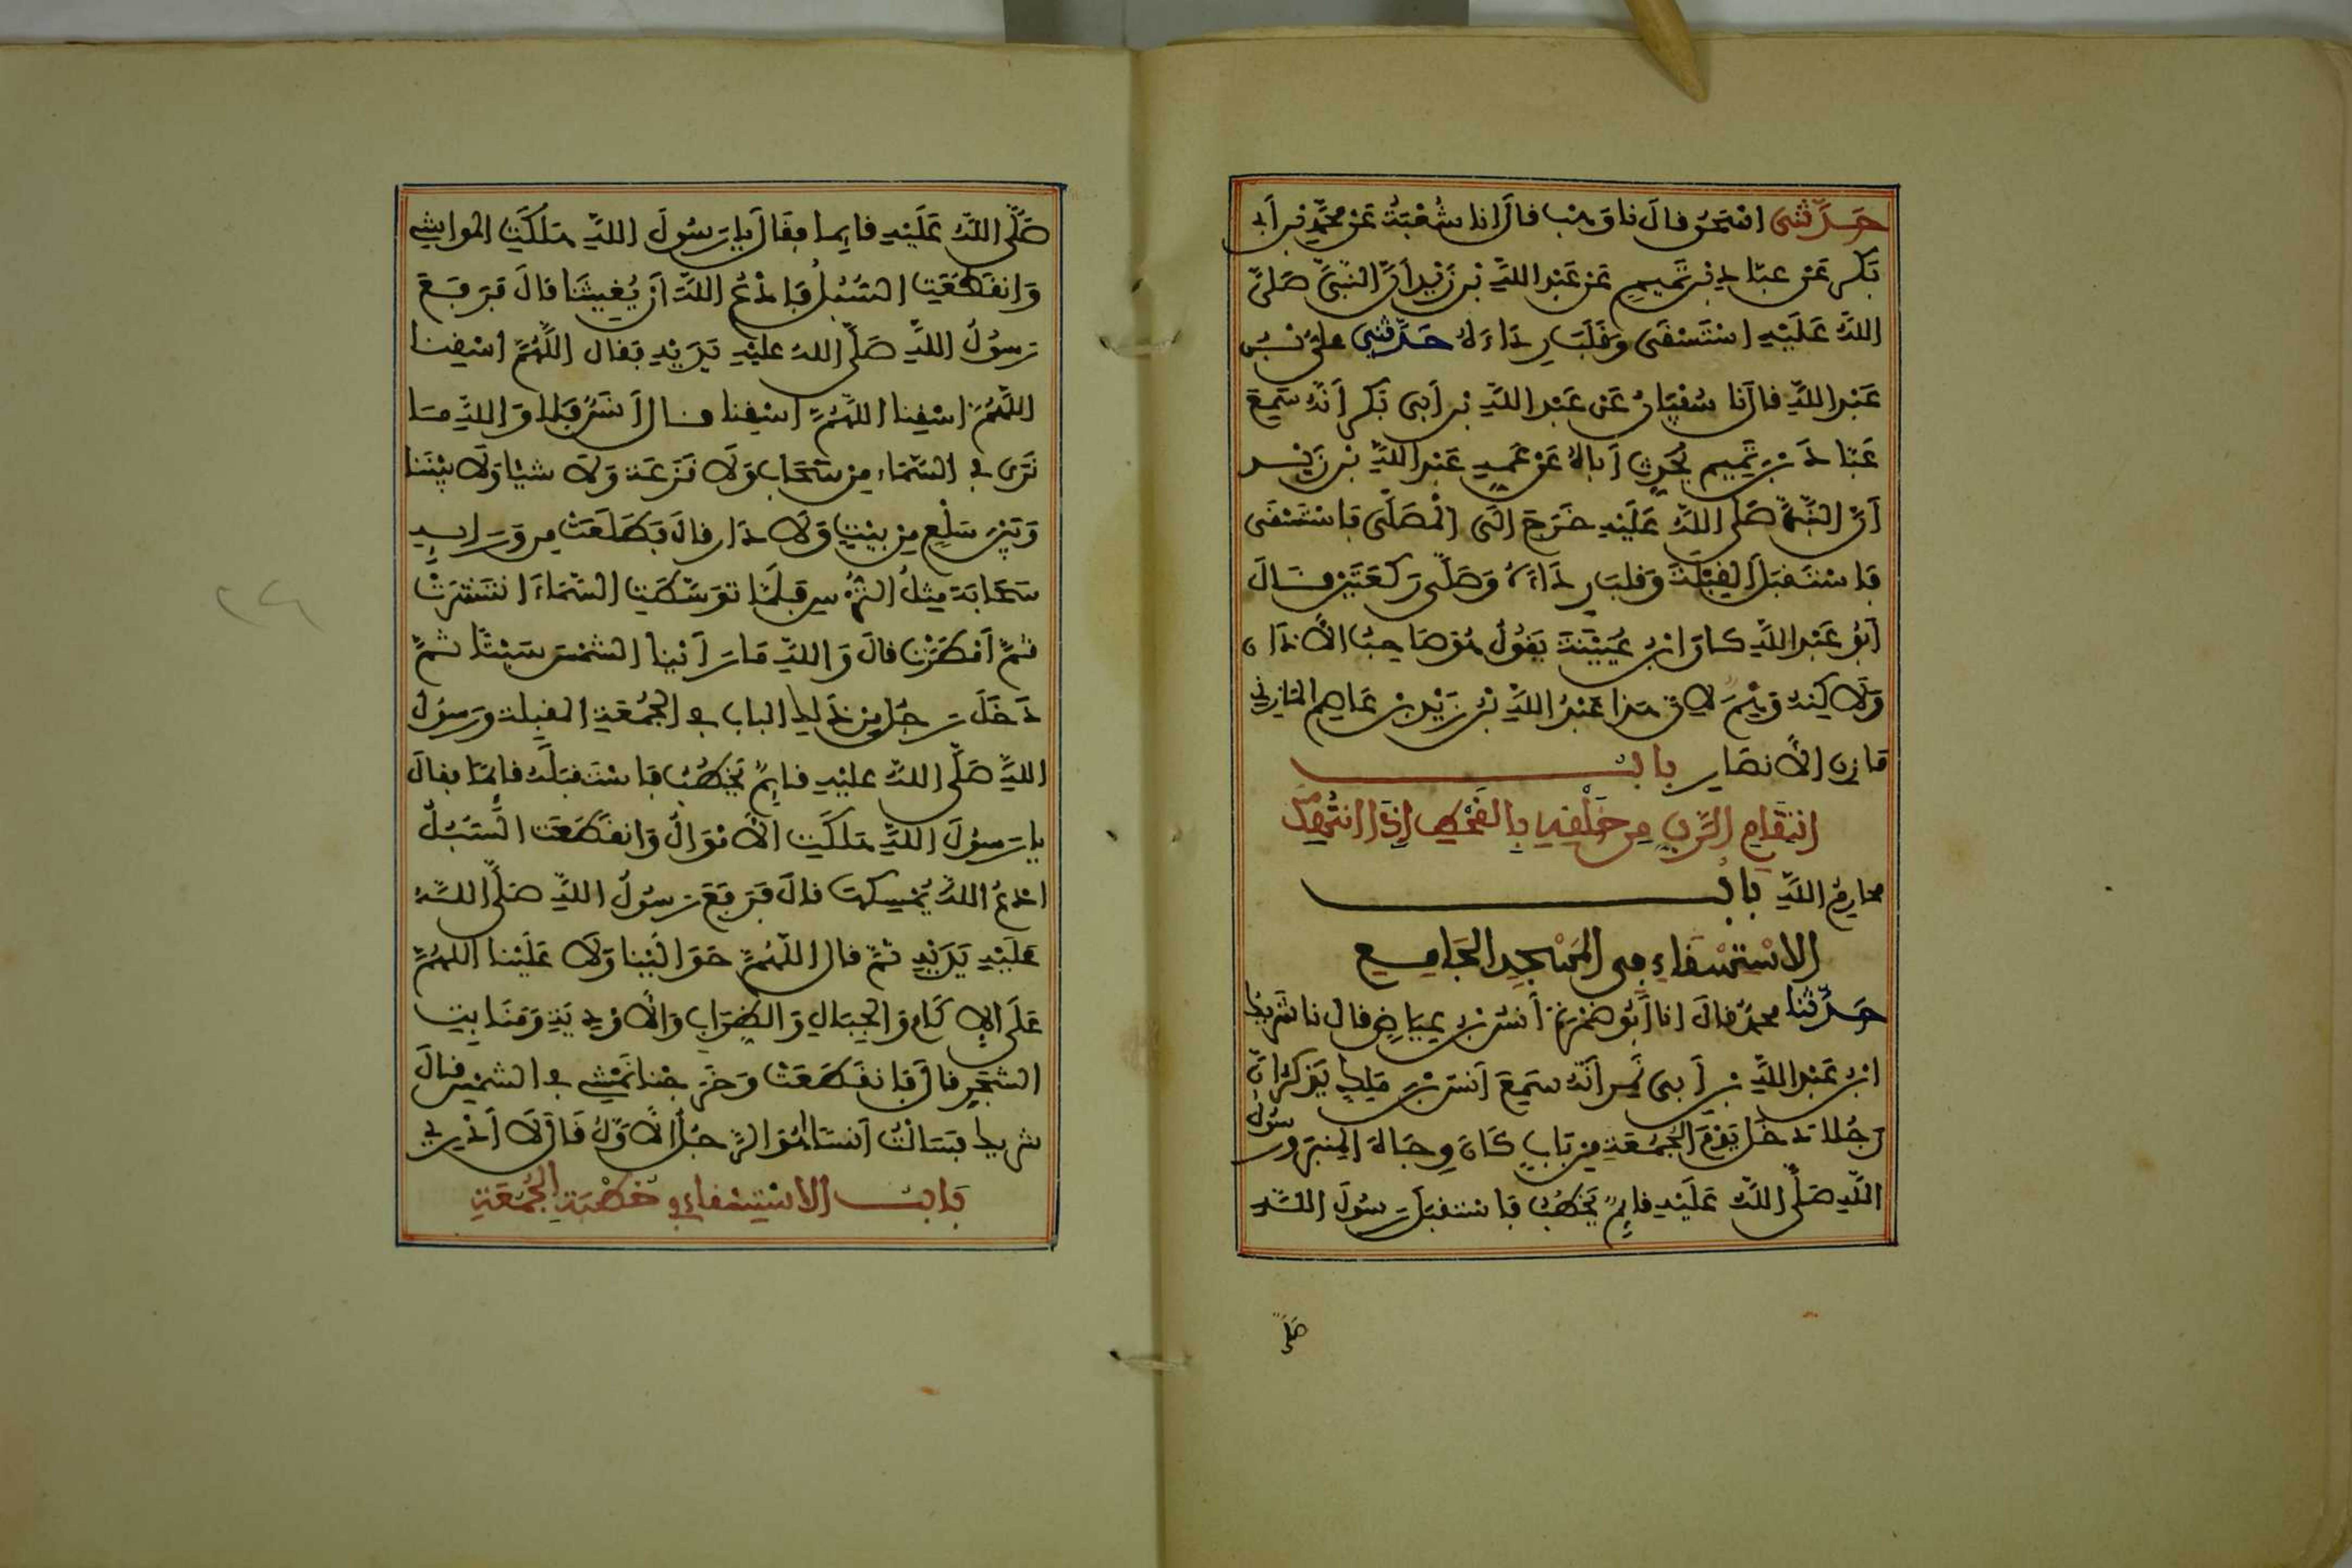 حدثني اسحق قال نا وهب قال انا شعبة عن محمد بن أبي
بكر عن عباد بن تميم عن عبد الله بن زيد أن النبي صلى
الله عليه استسقى وقلب رداءه حدثني علي بن
عبد الله قال نا سفيان عن عبد الله بن أبي بكر أنه سمع
عباد بن تميم يحدث أباه عن عمه عبد الله بن زيد
أن النبي صلى الله عليه خرج الى المصلى فاستسقى
فاستقبل القبلة وقلب رداءه وصلى ركعتين قال
أبو عبد الله كان ابن عيينة يقول هو صاحب الأذان
ولاكنه وهم لان هذا عبد الله بن زيد بن عاصم المازني
مازن الأنصار باب
انتقام الرب من خلقه بالقحط إذا انتهك
محارم الله باب
الاستسقاء في المسجد الجامع
حدثنا محمد قال انا أبو ضمرة أنس بن عياض قال نا شريك
ابن عبد الله بن أبي نمر أنه سمع أنس بن ملك يذكر ان
رجلا دخل يوم الجمعة من باب كان وجاه المنبر ورسول
الله صلى الله عليه قايم يخطب فاستقبل رسول الله
صلى
صلى الله عليه قايما فقال يا رسول الله هلكت المواشي
وانقطعت السبل فادع الله أن يغيثنا قال فرفع
رسول الله صلى الله عليه يديه فقال اللهم اسقنا
اللهم اسقنا اللهم اسقنا قال أنس فلا والله ما
نرى في السماء من سحاب ولا قزعة ولا شيا ولا بيننا
وبين سلع من بيت ولا دار قال فطلعت من ورايه
سحابة مثل الترس فلما توسطت السماء انتشرت
ثم أمطرت قال والله ما رأينا الشمس سبتا ثم
دخل رجل من ذلك الباب في الجمعة المقبلة ورسول
الله صلى الله عليه قايم يخطب فاستقبله قائما فقال
يا رسول الله هلكت الأموال وانقطعت السبل
ادع الله يمسكها قال فرفع رسول الله صلى الله
عليه يديه ثم قال اللهم حوالينا ولا علينا اللهم
على الإكام والجبال والظراب والأودية ومنابت
الشجر قال فانقطعت وخرجنا نمشي في الشمس قال
شريك فسالت أنسا أهو الرجل الأول قال لا أدري
باب الاستسقاء في خطبة الجمعة